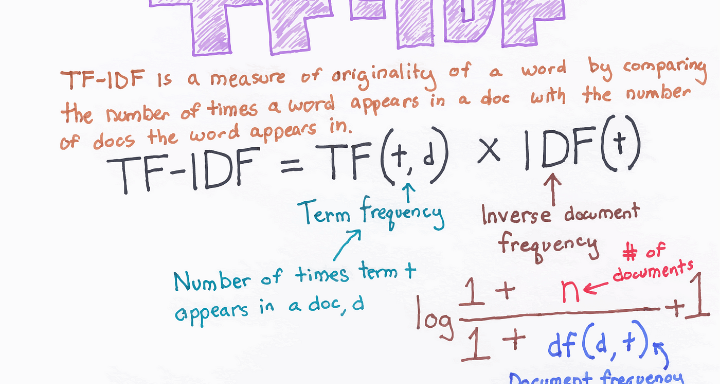 TF-IDF
TF-IDF is a measure of originality of a word by comparing
the number of times a word appears in a doc with the number
of docs the word appears in.
TF-IDF = TF(t, d) x IDF(t)
Term frequency
Inverse document
frequency
Number of times term t
appears in a doc, d
# of
documents
log 1 + n
1 + df(d, t) + 1
Document frequency